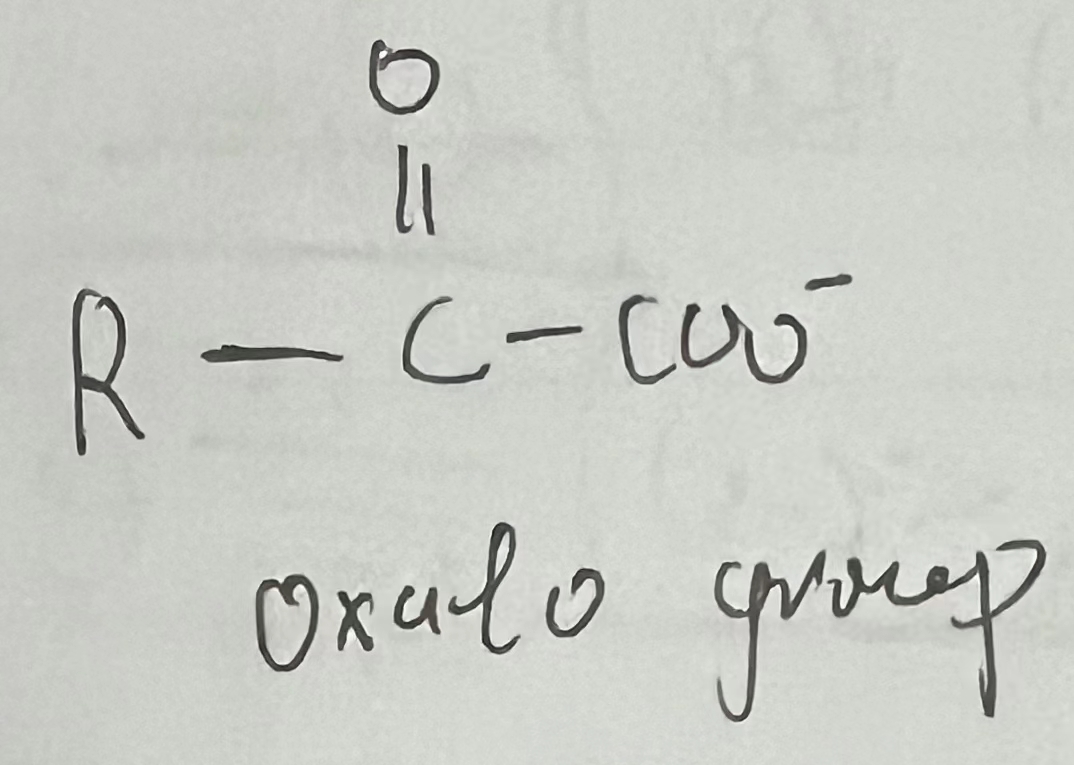 O
||
R — C — COO⁻
Oxalo group